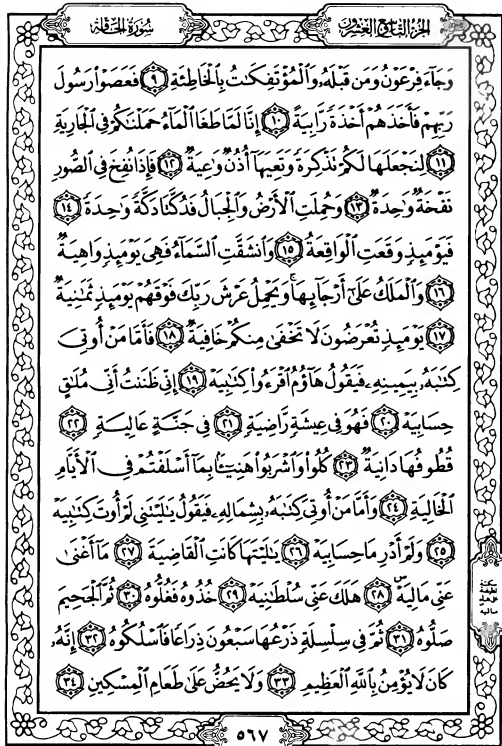 الجزء التاسع والعشرون
سورة الحاقة
وَجَآءَ فِرْعَوْنُ وَمَن قَبْلَهُۥ وَٱلْمُؤْتَفِكَٰتُ بِٱلْخَاطِئَةِ ٩ فَعَصَوْا۟ رَسُولَ
رَبِّهِمْ فَأَخَذَهُمْ أَخْذَةً رَّابِيَةً ١٠ إِنَّا لَمَّا طَغَا ٱلْمَآءُ حَمَلْنَٰكُمْ فِى ٱلْجَارِيَةِ
١١ لِنَجْعَلَهَا لَكُمْ تَذْكِرَةً وَتَعِيَهَآ أُذُنٌ وَٰعِيَةٌ ١٢ فَإِذَا نُفِخَ فِى ٱلصُّورِ
نَفْخَةٌ وَٰحِدَةٌ ١٣ وَحُمِلَتِ ٱلْأَرْضُ وَٱلْجِبَالُ فَدُكَّتَا دَكَّةً وَٰحِدَةً ١٤
فَيَوْمَئِذٍ وَقَعَتِ ٱلْوَاقِعَةُ ١٥ وَٱنشَقَّتِ ٱلسَّمَآءُ فَهِىَ يَوْمَئِذٍ وَاهِيَةٌ
١٦ وَٱلْمَلَكُ عَلَىٰٓ أَرْجَآئِهَا ۚ وَيَحْمِلُ عَرْشَ رَبِّكَ فَوْقَهُمْ يَوْمَئِذٍ ثَمَٰنِيَةٌ
١٧ يَوْمَئِذٍ تُعْرَضُونَ لَا تَخْفَىٰ مِنكُمْ خَافِيَةٌ ١٨ فَأَمَّا مَنْ أُوتِىَ
كِتَٰبَهُۥ بِيَمِينِهِۦ فَيَقُولُ هَآؤُمُ ٱقْرَءُوا۟ كِتَٰبِيَهْ ١٩ إِنِّى ظَنَنتُ أَنِّى مُلَٰقٍ
حِسَابِيَهْ ٢٠ فَهُوَ فِى عِيشَةٍ رَّاضِيَةٍ ٢١ فِى جَنَّةٍ عَالِيَةٍ ٢٢
قُطُوفُهَا دَانِيَةٌ ٢٣ كُلُوا۟ وَٱشْرَبُوا۟ هَنِيٓـًٔۢا بِمَآ أَسْلَفْتُمْ فِى ٱلْأَيَّامِ
ٱلْخَالِيَةِ ٢٤ وَأَمَّا مَنْ أُوتِىَ كِتَٰبَهُۥ بِشِمَالِهِۦ فَيَقُولُ يَٰلَيْتَنِى لَمْ أُوتَ كِتَٰبِيَهْ
٢٥ وَلَمْ أَدْرِ مَا حِسَابِيَهْ ٢٦ يَٰلَيْتَهَا كَانَتِ ٱلْقَاضِيَةَ ٢٧ مَآ أَغْنَىٰ
عَنِّى مَالِيَهْ ۜ ٢٨ هَلَكَ عَنِّى سُلْطَٰنِيَهْ ٢٩ خُذُوهُ فَغُلُّوهُ ٣٠ ثُمَّ ٱلْجَحِيمَ
صَلُّوهُ ٣١ ثُمَّ فِى سِلْسِلَةٍ ذَرْعُهَا سَبْعُونَ ذِرَاعًا فَٱسْلُكُوهُ ٣٢ إِنَّهُۥ
كَانَ لَا يُؤْمِنُ بِٱللَّهِ ٱلْعَظِيمِ ٣٣ وَلَا يَحُضُّ عَلَىٰ طَعَامِ ٱلْمِسْكِينِ ٣٤
٥٦٧